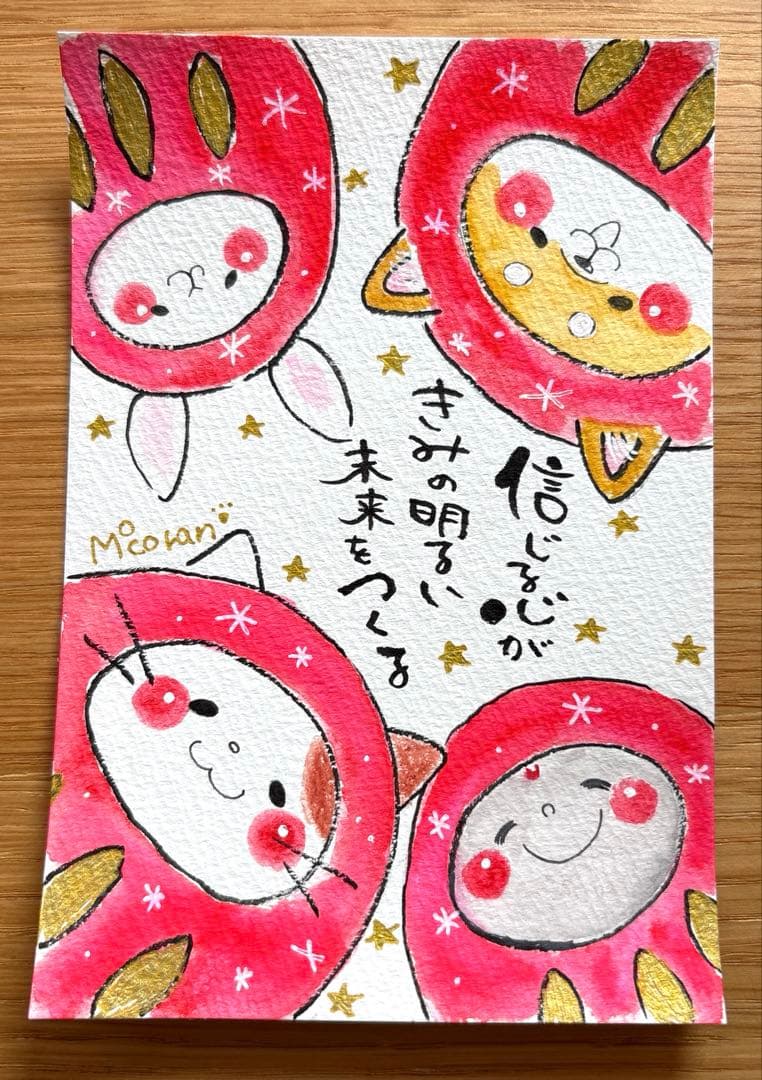 信じる心が
きみの明るい
未来をつくる
Micoran